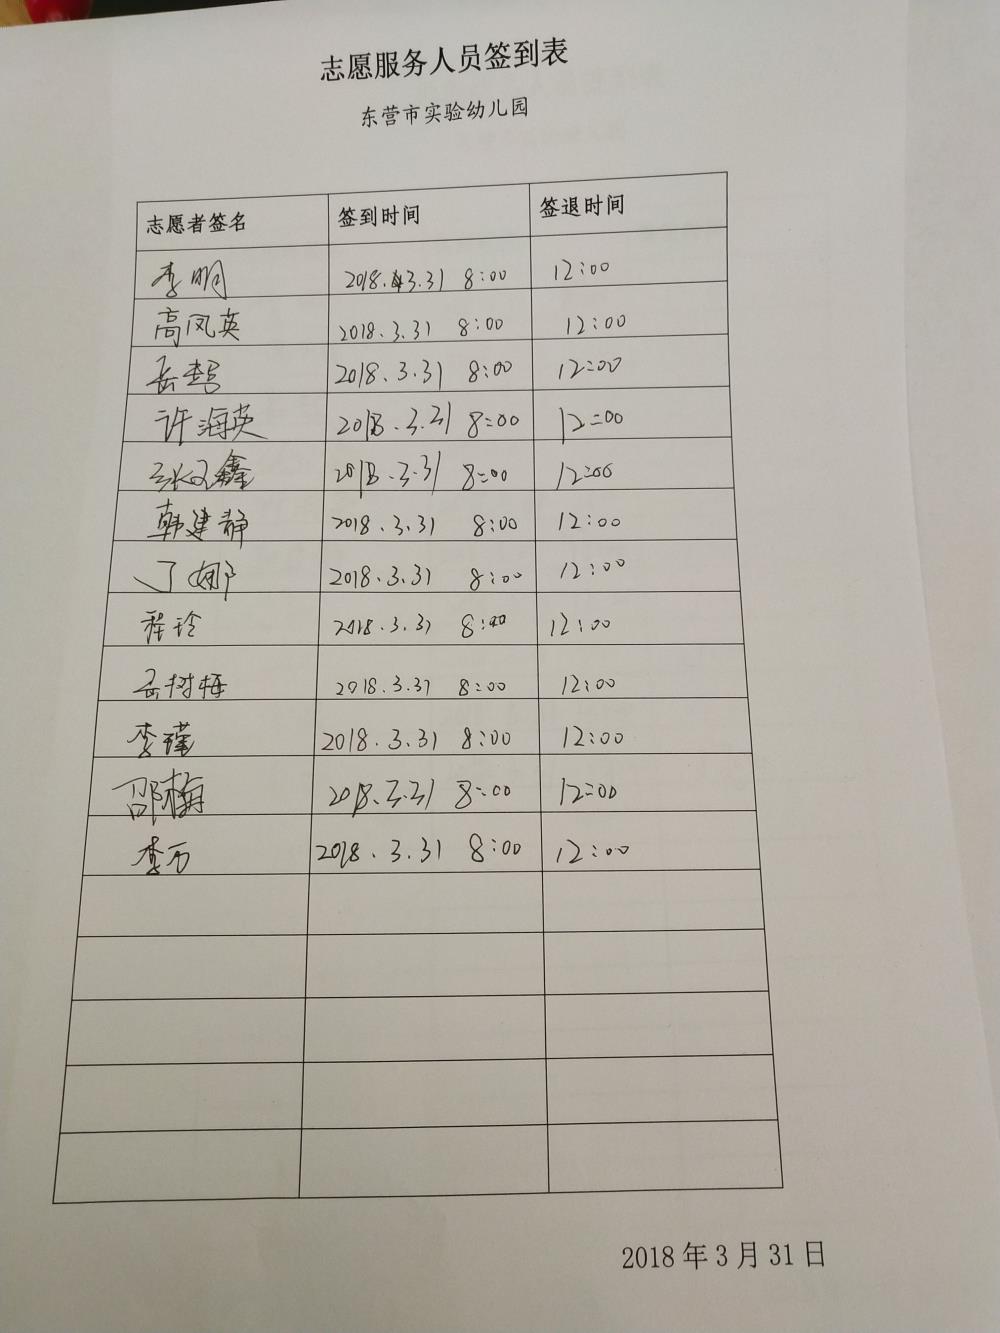 志愿服务人员签到表
东营市实验幼儿园
志愿者签名 签到时间 签退时间
李明 2018.3.31 8:00 12:00
高凤英 2018.3.31 8:00 12:00
岳 2018.3.31 8:00 12:00
许海英 2018.3.31 8:00 12:00
张文鑫 2018.3.31 8:00 12:00
韩建静 2018.3.31 8:00 12:00
丁娜 2018.3.31 8:00 12:00
程玲 2018.3.31 8:00 12:00
岳树梅 2018.3.31 8:00 12:00
李瑾 2018.3.31 8:00 12:00
邵梅 2018.3.31 8:00 12:00
李 2018.3.31 8:00 12:00
2018年3月31日